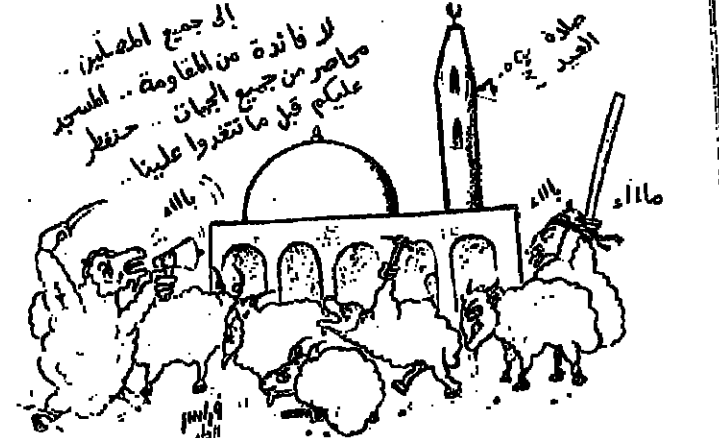 إلى جميع المصلين ..
لا فائدة من المقاومة .. المسجد
محاصر من جميع الجهات .. حنفطر
عليكم قبل ما تتغدوا علينا ..
صلاة
العيد
بااااء
بااااء
مااااء
فراس